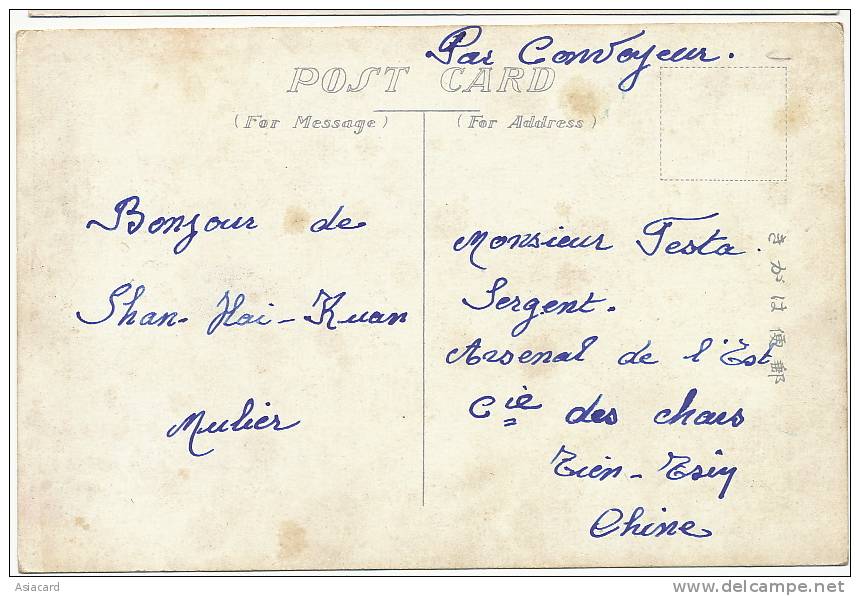 Par Convoyeur.
POST CARD
(For Message)
(For Address)
Bonjour de
Shan-Hai-Kuan
Mulier
Monsieur Testa.
Sergent.
Arsenal de l'Est
Cie des chars
Tien-Tsin
Chine
きがは便郵
Asiacard
delcampe.net